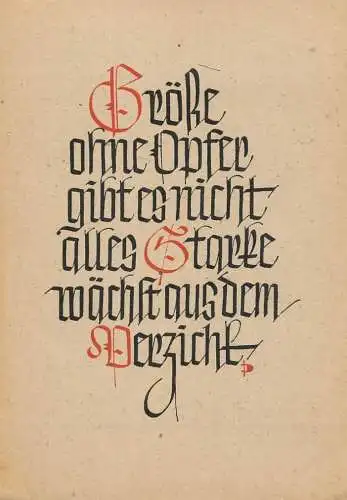 Größe
ohne Opfer
gibt es nicht
alles Starke
wächst aus dem
Verzicht.